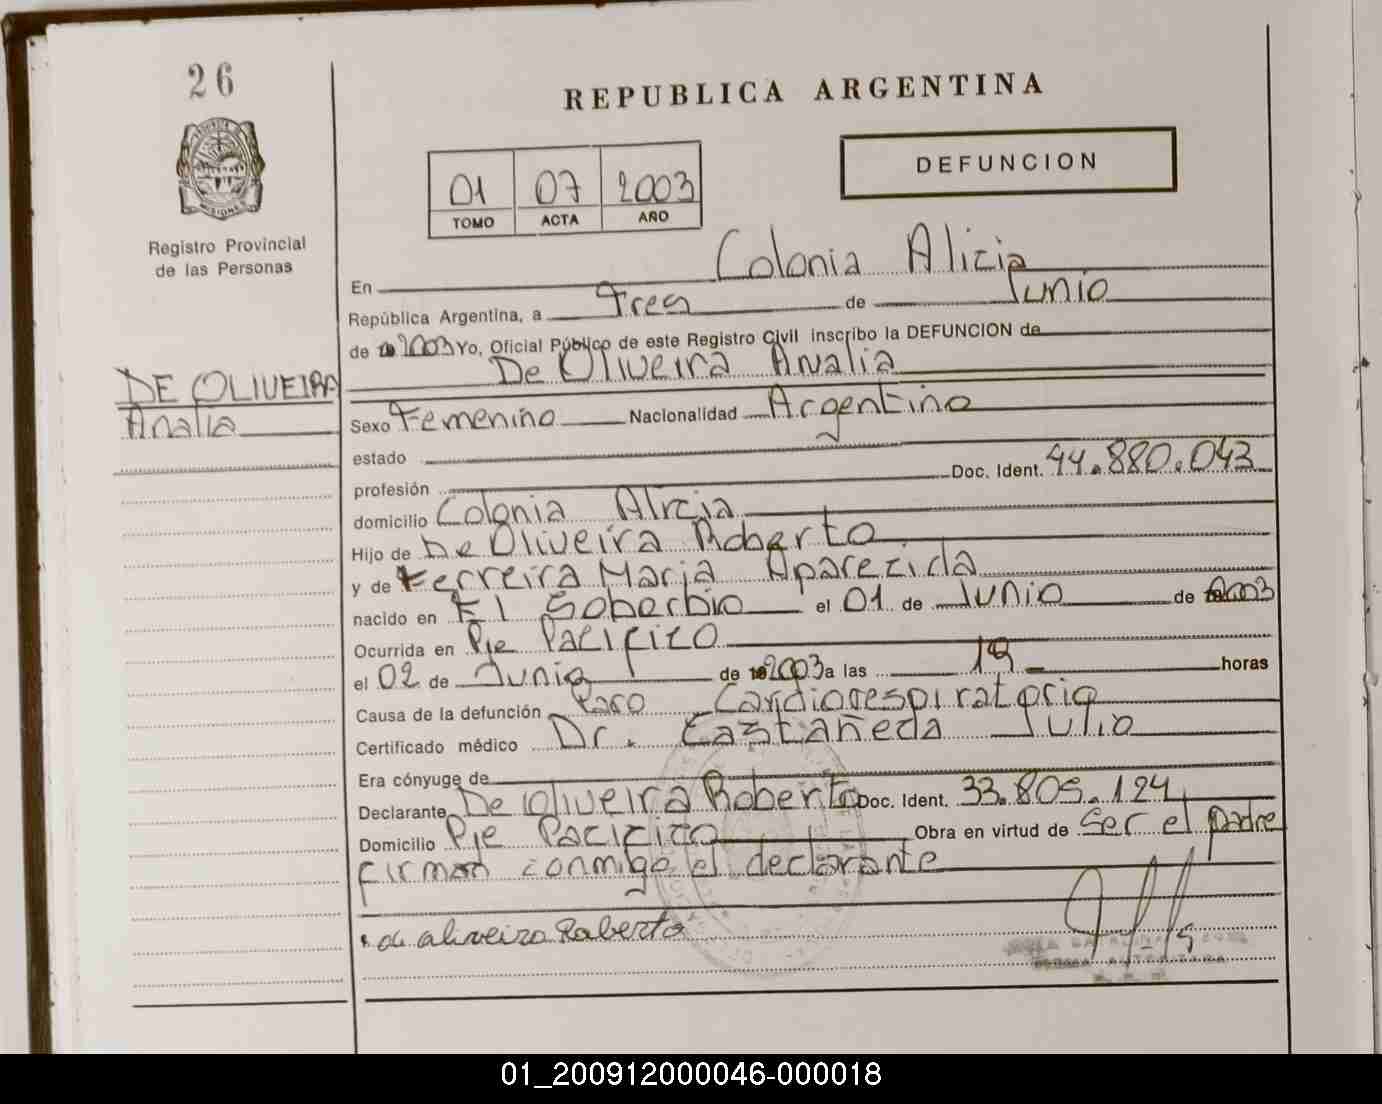 26
REPUBLICA ARGENTINA
DEFUNCION
01 07 2003
TOMO ACTA AÑO
MISIONES
Registro Provincial
de las Personas
DE OLIVEIRA
Analia
En Colonia Alicia
República Argentina, a Tres de Junio
de 2003 Yo, Oficial Público de este Registro Civil inscribo la DEFUNCION de
De Oliveira Analia
Sexo Femenino Nacionalidad Argentino
estado
profesión Doc. Ident. 44.880.043
domicilio Colonia Alicia
Hijo de De Oliveira Roberto
y de Ferreira Maria Aparecida
nacido en El Soberbio el 01 de Junio de 2003
Ocurrida en Pje Pacifico
el 02 de Junio de 2003 a las 19 horas
Causa de la defunción Paro Cardiorespiratorio
Certificado médico Dr. Castañeda Julio
Era cónyuge de
Declarante De Oliveira Roberto Doc. Ident. 33.805.124
Domicilio Pje Pacifico Obra en virtud de Ser el padre
firman conmigo el declarante
de oliveira Roberto
01_200912000046-000018